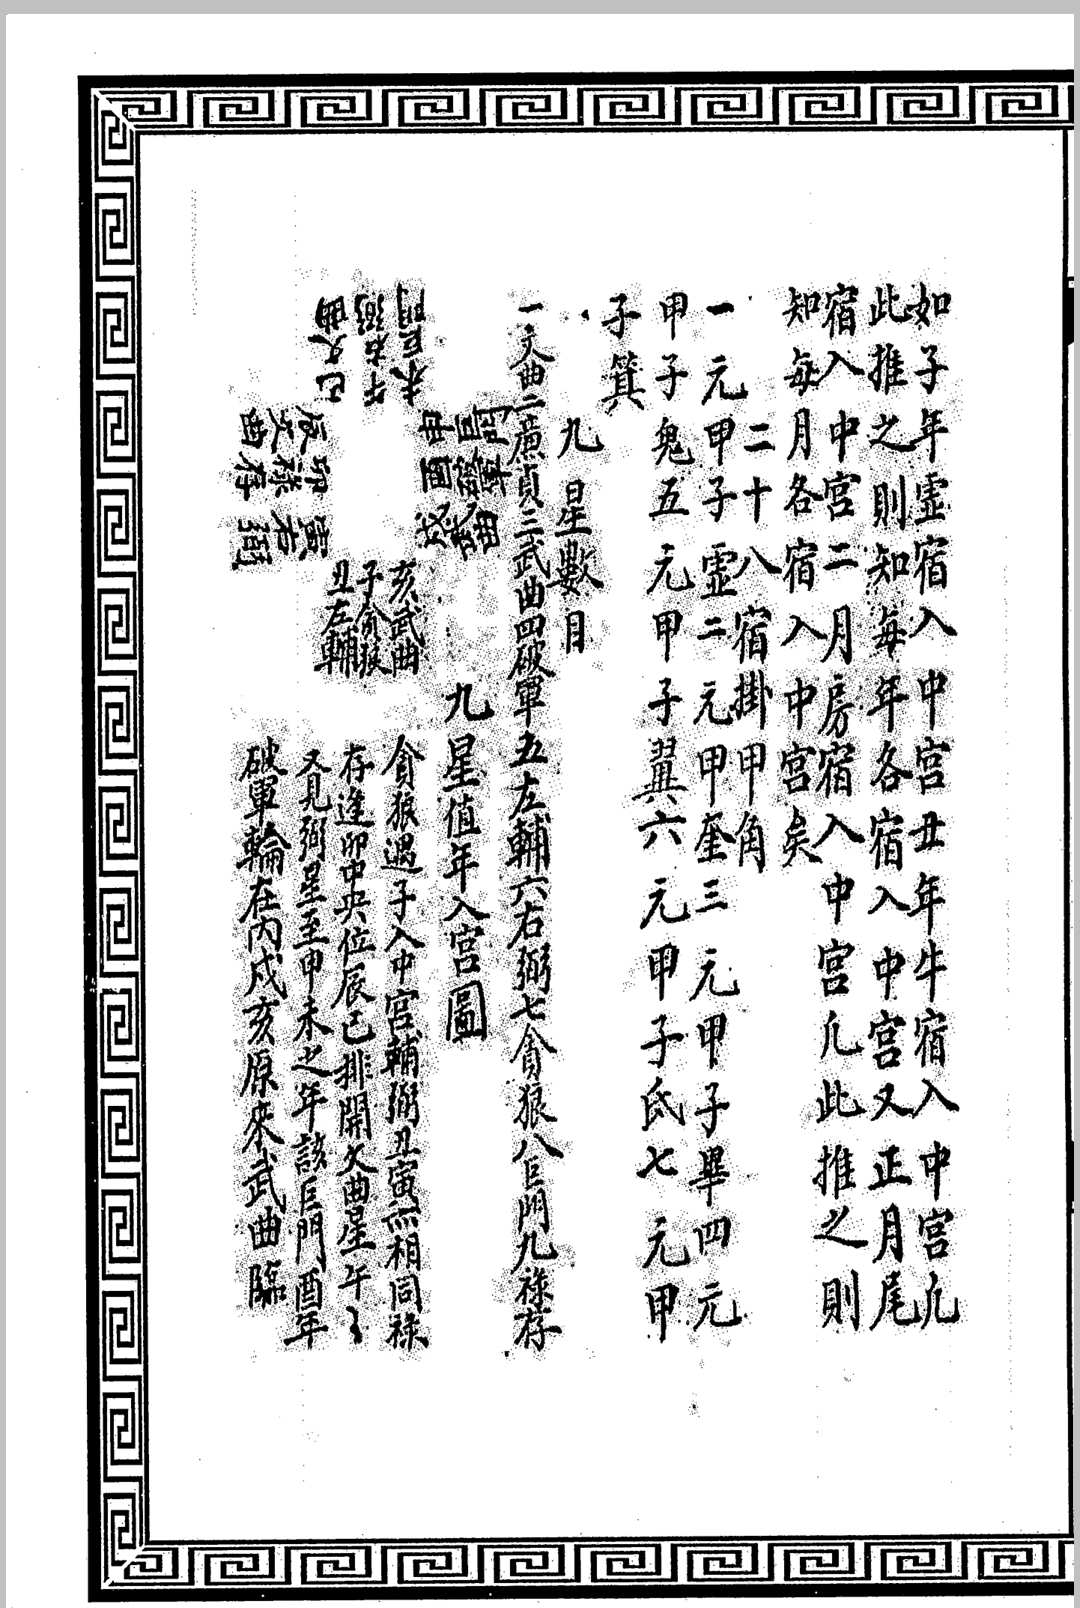 如子年虚宿入中宫丑年牛宿入中宫凢
此推之則知每年各宿入中宫又正月尾
宿入中宫二月房宿入中宫凢此推之則
知每月各宿入中宫矣
二十八宿掛甲角
一元甲子虚二元甲奎三元甲子畢四元
甲子鬼五元甲子翼六元甲子氐七元甲
子箕
九星數目
一文曲二廉貞三武曲四破軍五左輔六右弼七貪狼八巨門九祿存
九星值年入宫圖
未巨門
午右弼
巳文曲
申巨門
酉破軍
戌武曲
辰文曲
卯祿存
寅右弼
亥武曲
子貪狼
丑左輔
貪狼遇子入中宫輔弼丑寅相同祿
存逢卯中央位辰巳排開文曲星午
又見弼星至申未之年該巨門酉年
破軍輪在内戌亥原來武曲臨